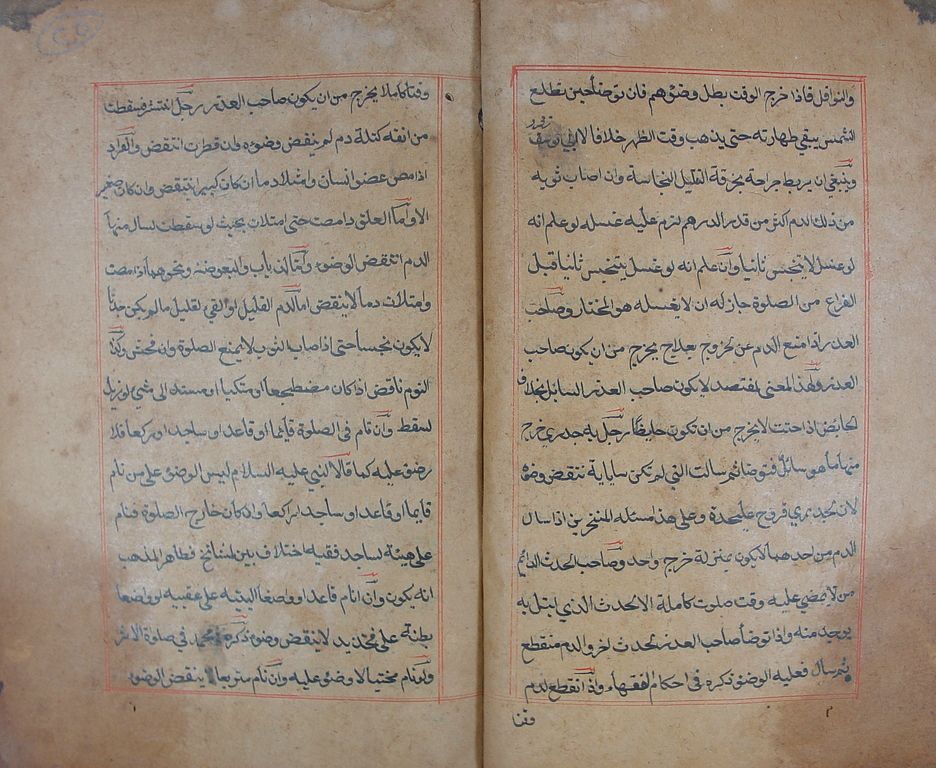 والنوافل فاذا خرج الوقت بطل وضؤهم فان توضأ حين تطلع
الشمس يبقي طهارته حتى يذهب وقت الظهر خلافا لابي يوسف
وزفر
وينبغي ان يربط جراحة بخرقة لتقليل النجاسة وان اصاب ثوبه
من ذلك الدم اكثر من قدر الدرهم لزم عليه غسله لو علم انه
لو غسل لا يتنجس ثانيا وان علم انه لو غسل يتنجس ثانيا قبل
الفراغ من الصلوة جاز له ان لا يغسله هو المختار وصاحب
العدر اذا منع الدم عن الخروج بعلاج يخرج من ان يكون صاحب
العدر ولهذا المعني المفتصد لا يكون صاحب العدر السايل بخلاف
الحايض اذا احتت لا يخرج من ان تكون حايضا رجل به جدري خرج
منها ماء هو سائل فتوضا ثم سالت التي لم تكن سايلة نتقض وضؤ
لان الجدري قروح عليحدة وعلى هذا مسئله المنخرين اذا سال
الدم من احدهما لا يكون بمنزلة خرج واحد وصاحب الحدث الدائم
من لا يمضي عليه وقت صلوت كاملة الا لحدث الذي ابتل به
يوجد منه واذا توضأ صاحب العدر لحدث اخر والدم منقطع
ثم سال فعليه الوضؤ ذكره في احكام الفقهاء واذا انقطع الدم
وقتا
وقتا كاملا يخرج من ان يكون صاحب العدر رجل انتثر فسقطت
من انفه كتلة دم لم ينقض وضوءه وان قطرت انتقض والقراد
اذا مص عضو انسان وامتلا دما ان كان كبيرا انتقض وان كان صغيرا
لا واما العلق اذا مصت حتى امتلات بحيث لو سقطت لسال منها
الدم انتقض الوضوء واما الذباب والبعوضة ونحوهما اذا مصت
وامتلات دما لا ينقض اما الدم القليل او القي القليل ما لم يكن حدثا
لا يكون نجسا حتى اذا صاب الثوب لا يمنع الصلوة وان فحش وكذا
النوم ناقض اذا كان مضطجعا او متكيا او مستندا الى شي لو زيل
لسقط وان نام في الصلوة قايما او قاعدا او ساجدا او راكعا فلا
وضؤ عليه كما قال النبي عليه السلام ليس الوضؤ على من نام
قايما او قاعدا او ساجدا او راكعا وان كان خارج الصلوة فنام
على هيئة لساجد ففيه اختلاف بين المشايخ فظاهر المذهب
انه يكون وان نام قاعدا وواضعا اليتيه على عقبيه او واضعا
بطنه على فخذيه لا ينقض وضوء ذكره محمد في صلوة الاثر
ولو نام محتبيا لا وضوء عليه وان نام متربعا لا ينقض الوضوء